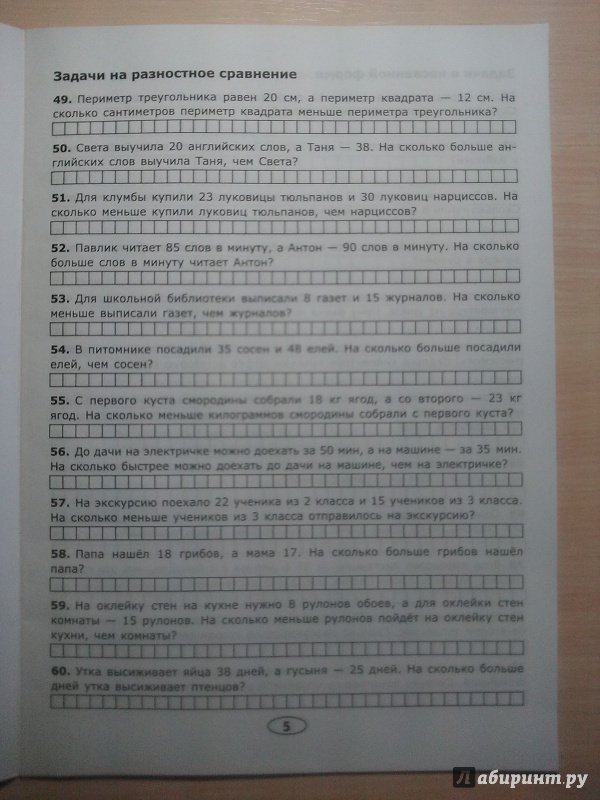 Задачи на разностное сравнение
49. Периметр треугольника равен 20 см, а периметр квадрата — 12 см. На
сколько сантиметров периметр квадрата меньше периметра треугольника?
50. Света выучила 20 английских слов, а Таня — 38. На сколько больше ан-
глийских слов выучила Таня, чем Света?
51. Для клумбы купили 23 луковицы тюльпанов и 30 луковиц нарциссов. На
сколько меньше купили луковиц тюльпанов, чем нарциссов?
52. Павлик читает 85 слов в минуту, а Антон — 90 слов в минуту. На сколько
больше слов в минуту читает Антон?
53. Для школьной библиотеки выписали 8 газет и 15 журналов. На сколько
меньше выписали газет, чем журналов?
54. В питомнике посадили 35 сосен и 48 елей. На сколько больше посадили
елей, чем сосен?
55. С первого куста смородины собрали 18 кг ягод, а со второго — 23 кг
ягод. На сколько меньше килограммов смородины собрали с первого куста?
56. До дачи на электричке можно доехать за 50 мин, а на машине — за 35 мин.
На сколько быстрее можно доехать до дачи на машине, чем на электричке?
57. На экскурсию поехало 22 ученика из 2 класса и 15 учеников из 3 класса.
На сколько меньше учеников из 3 класса отправилось на экскурсию?
58. Папа нашёл 18 грибов, а мама 17. На сколько больше грибов нашёл
папа?
59. На оклейку стен на кухне нужно 8 рулонов обоев, а для оклейки стен
комнаты — 15 рулонов. На сколько меньше рулонов пойдёт на оклейку стен
кухни, чем комнаты?
60. Утка высиживает яйца 38 дней, а гусыня — 25 дней. На сколько больше
дней утка высиживает птенцов?
5
Лабиринт.ру